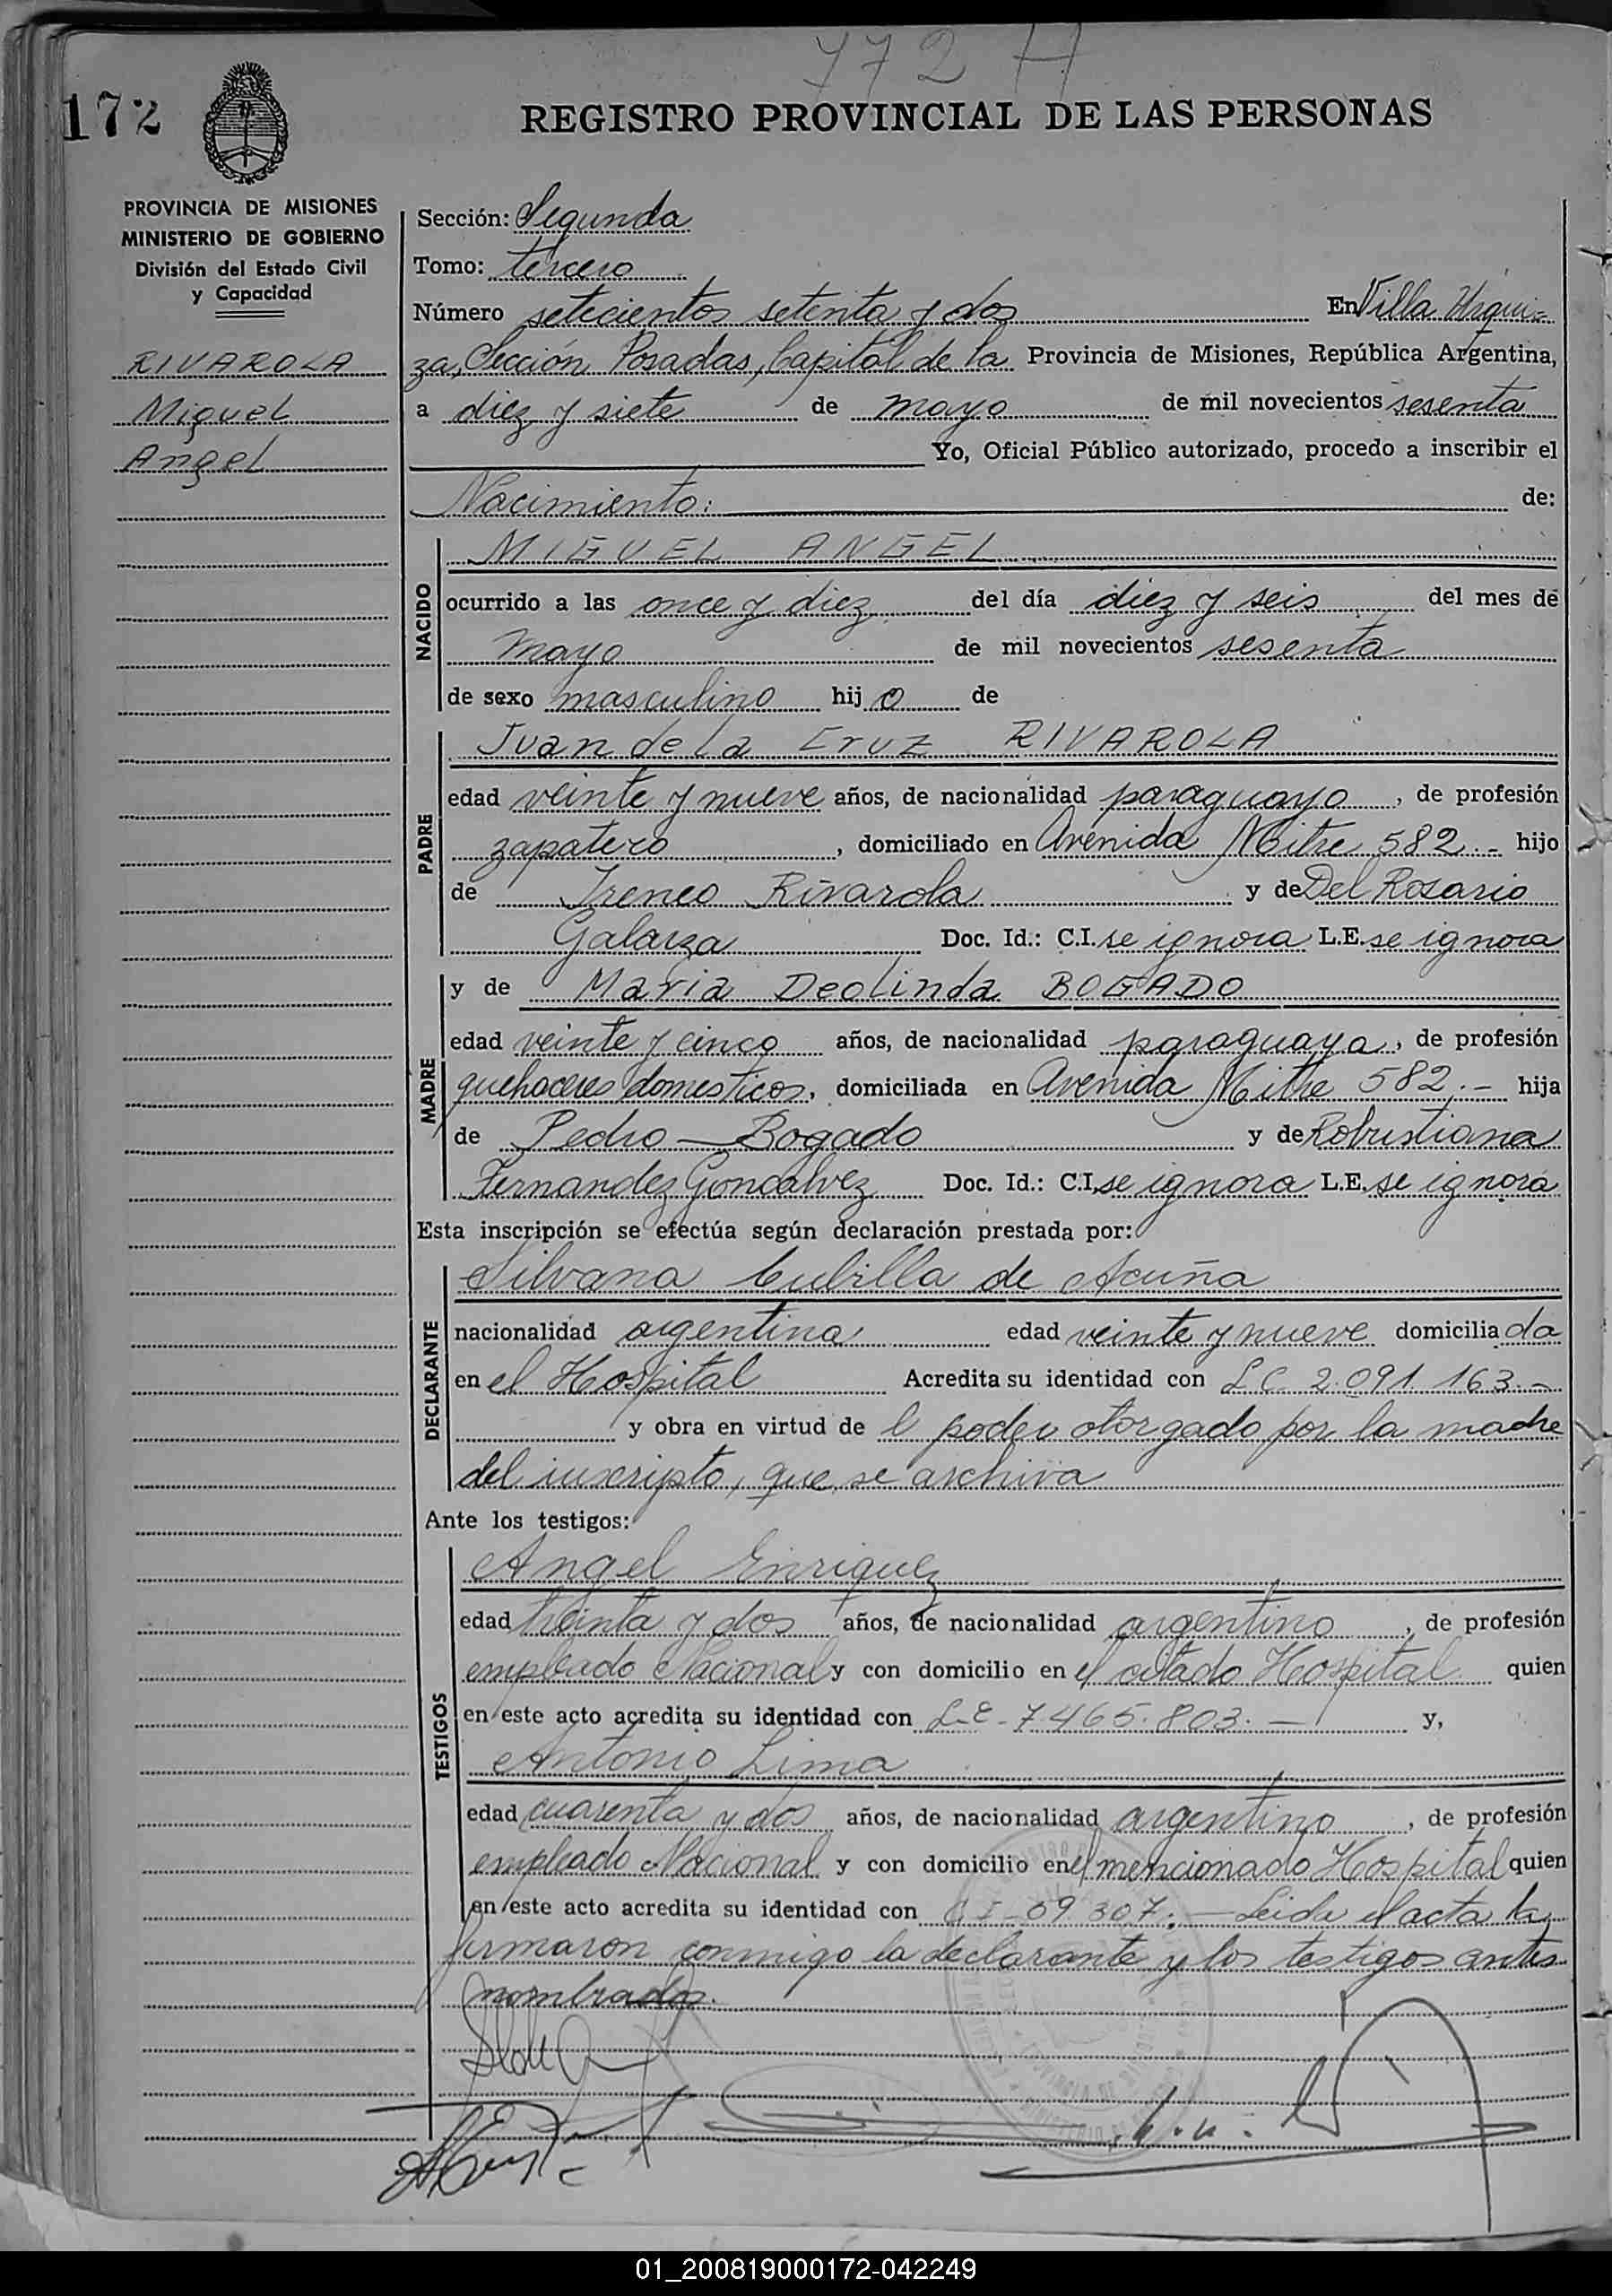 772 A
172
REGISTRO PROVINCIAL DE LAS PERSONAS
PROVINCIA DE MISIONES
MINISTERIO DE GOBIERNO
División del Estado Civil
y Capacidad
RIVAROLA
Miguel
Angel
Sección: Segunda
Tomo: tercero
Número setecientos setenta y dos En Villa Urqui-
za, Sección Posadas, Capital de la Provincia de Misiones, República Argentina,
a diez y siete de mayo de mil novecientos sesenta
Yo, Oficial Público autorizado, procedo a inscribir el
Nacimiento: de:
NACIDO
MIGUEL ANGEL
ocurrido a las once y diez del día diez y seis del mes de
mayo de mil novecientos sesenta
de sexo masculino hijo de
PADRE
Juan de la Cruz RIVAROLA
edad veinte y nueve años, de nacionalidad paraguayo, de profesión
zapatero, domiciliado en Avenida Mitre 582.- hijo
de Ireneo Rivarola y de Del Rosario
Galarza Doc. Id.: C.I. se ignora L.E. se ignora
MADRE
y de Maria Deolinda BOGADO
edad veinte y cinco años, de nacionalidad paraguaya, de profesión
quehaceres domesticos, domiciliada en Avenida Mitre 582.- hija
de Pedro Bogado y de Robustiana
Fernandez Goncalvez Doc. Id.: C.I. se ignora L.E. se ignora
Esta inscripción se efectúa según declaración prestada por:
DECLARANTE
Silvana Cubilla de Acuña
nacionalidad argentina edad veinte y nueve domiciliada
en el Hospital Acredita su identidad con L C 2.091.163.-
y obra en virtud de l poder otorgado por la madre
del inscripto, que se archiva
Ante los testigos:
TESTIGOS
Angel Enriquez
edad treinta y dos años, de nacionalidad argentino, de profesión
empleado Nacional y con domicilio en el citado Hospital quien
en este acto acredita su identidad con L.E - 7.465.803.- y,
Antonio Lima
edad cuarenta y dos años, de nacionalidad argentino, de profesión
empleado Nacional y con domicilio en el mencionado Hospital quien
en este acto acredita su identidad con C I - 09.307.- Leida el acta la
firmaron conmigo la declarante y los testigos antes
nombrados.
01_200819000172-042249